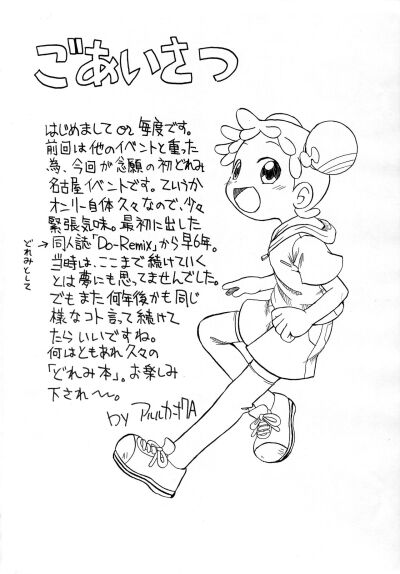 ごあいさつ
はじめまして or 毎度です。
前回は他のイベントと重った
為、今回が念願の初どれみ
名古屋イベントです。ていうか
オンリー自体久々なので、少々
緊張気味。最初に出した
どれみとして→同人誌「Do-Remix」から早6年。
当時は、ここまで続けていく
とは夢にも思ってませんでした。
でもまた何年後かも同じ
様なコト言って続けて
たらいいですね。
何はともあれ久々の
「どれみ本」。お楽しみ
下され〜。
by アルルカン